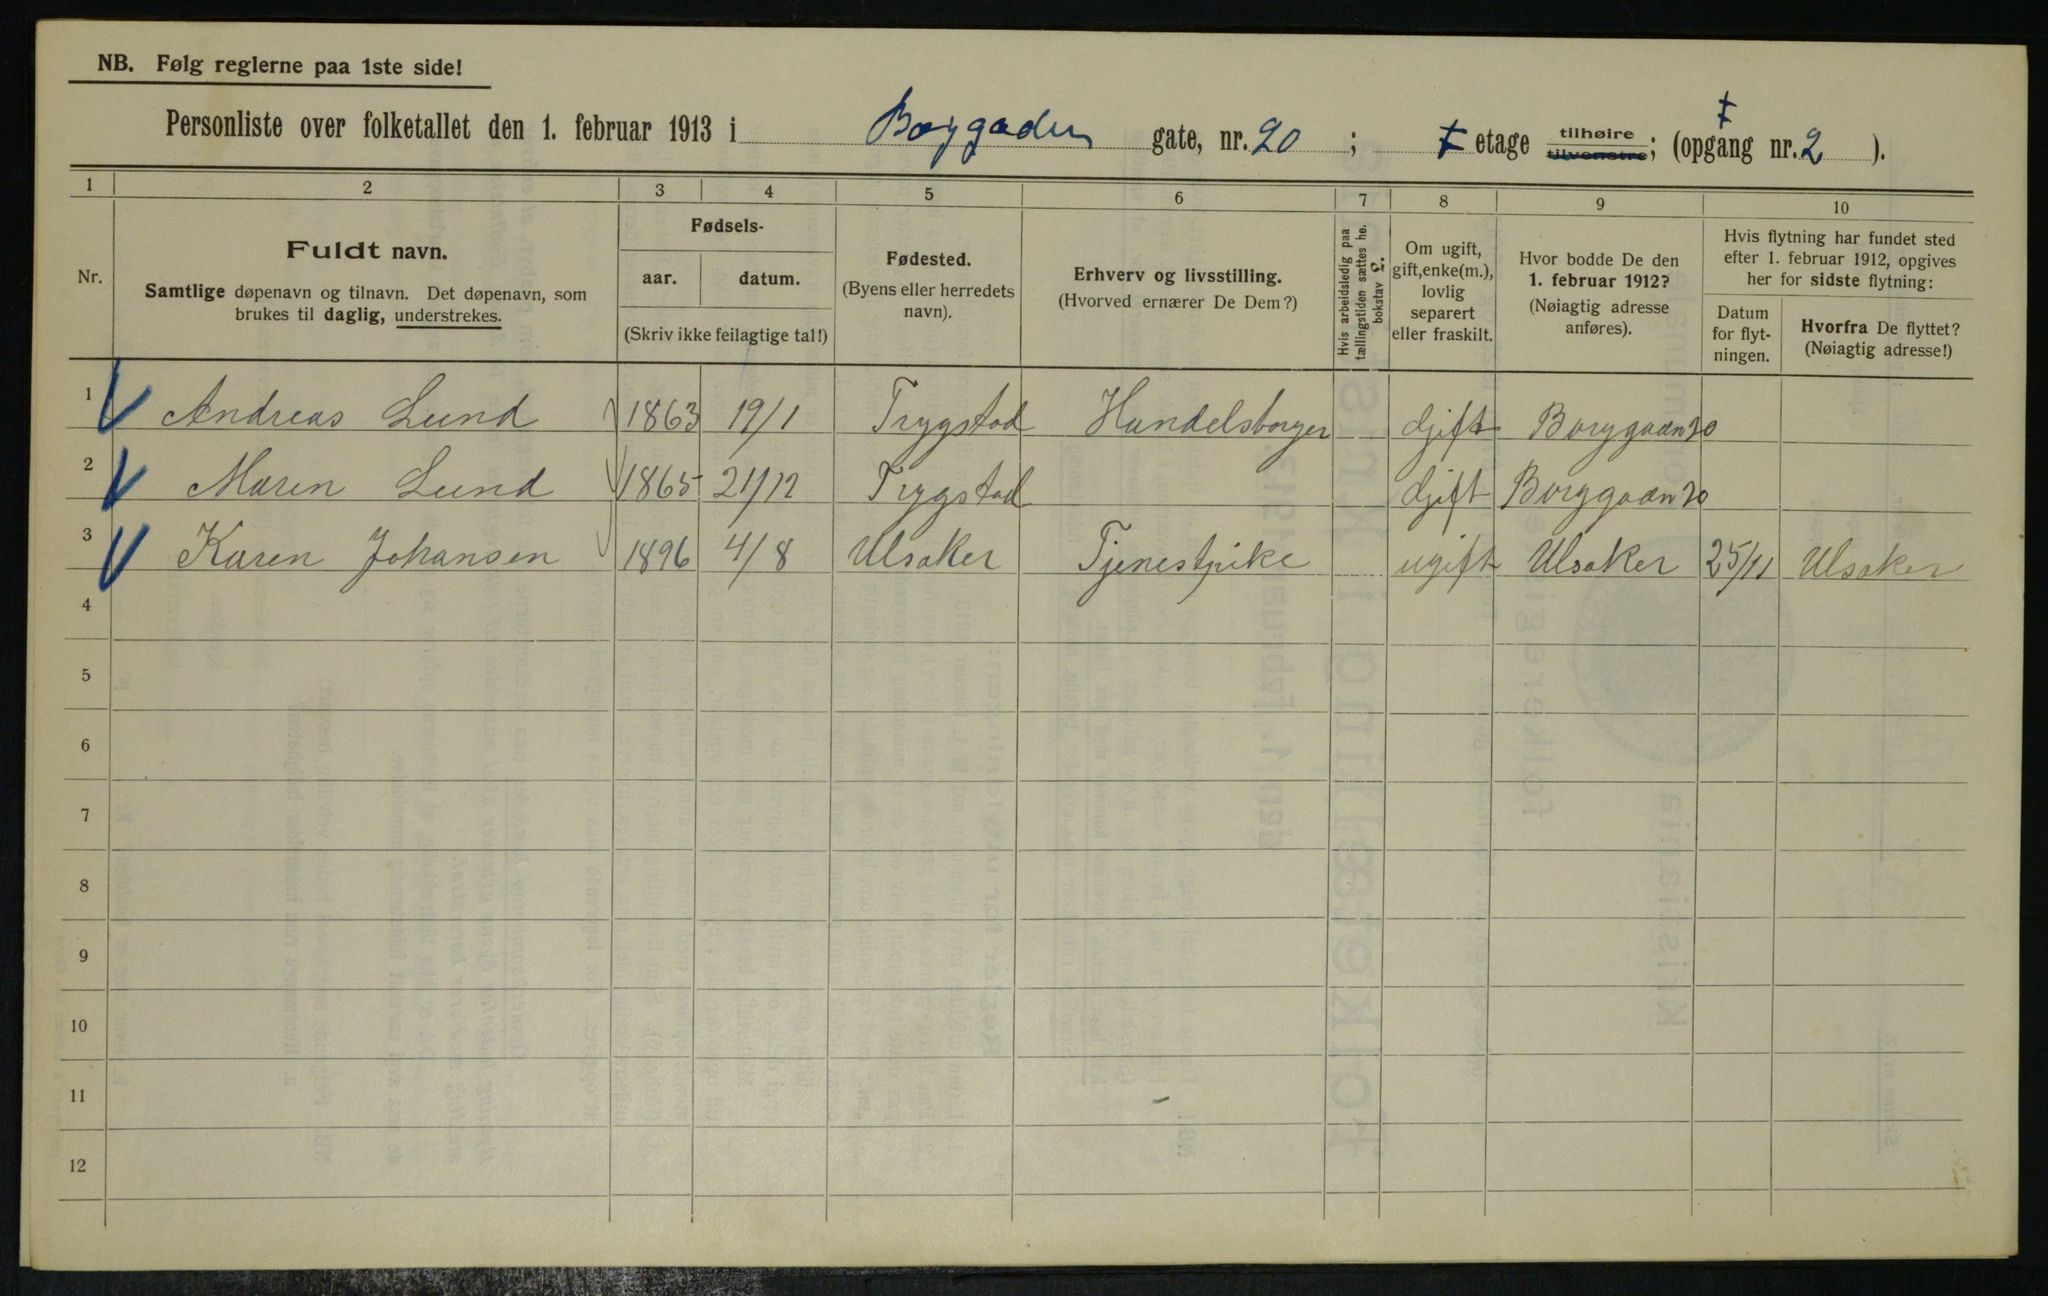 NB. Følg reglerne paa 1ste side!
Personliste over folketallet den 1. februar 1913 i Borggaden gate, nr. 20 ; I etage tilhøire tilvenstre; (opgang nr. 2 ).
1 2 3 4 5 6 7 8 9 10
Nr.
Fuldt navn.
Samtlige døpenavn og tilnavn. Det døpenavn, som
brukes til daglig, understrekes.
Fødsels-
aar. datum.
(Skriv ikke feilagtige tal!)
Fødested.
(Byens eller herredets
navn).
Erhverv og livsstilling.
(Hvorved ernærer De Dem?)
Hvis arbeidsledig paa
tællingstiden sættes he.
bokstav l.
Om ugift,
gift, enke(m.),
lovlig
separert
eller fraskilt.
Hvor bodde De den
1. februar 1912?
(Nøiagtig adresse
anføres).
Hvis flytning har fundet sted
efter 1. februar 1912, opgives
her for sidste flytning:
Datum
for flyt-
ningen.
Hvorfra De flyttet?
(Nøiagtig adresse!)
1 Andreas Lund 1863 19/1 Trygstad Handelsborger Gift Borggadn 20
2 Maren Lund 1865 21/12 Trygstad Gift Borggadn 20
3 Karen Johansen 1896 4/8 Ulsaker Tjenestpike ugift Ulsaker 25/11 Ulsaker
4
5
6
7
8
9
10
11
12